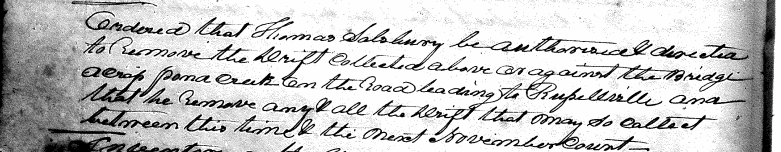 Ordered that Thomas Salsbury be authorised & directed
to Remove the Drift Collected above or against the Bridge
across pond creek on the Road leading to Russellville and
that he Remove any & all the Drift that may so collect
between this time & the next November Court
Inventory